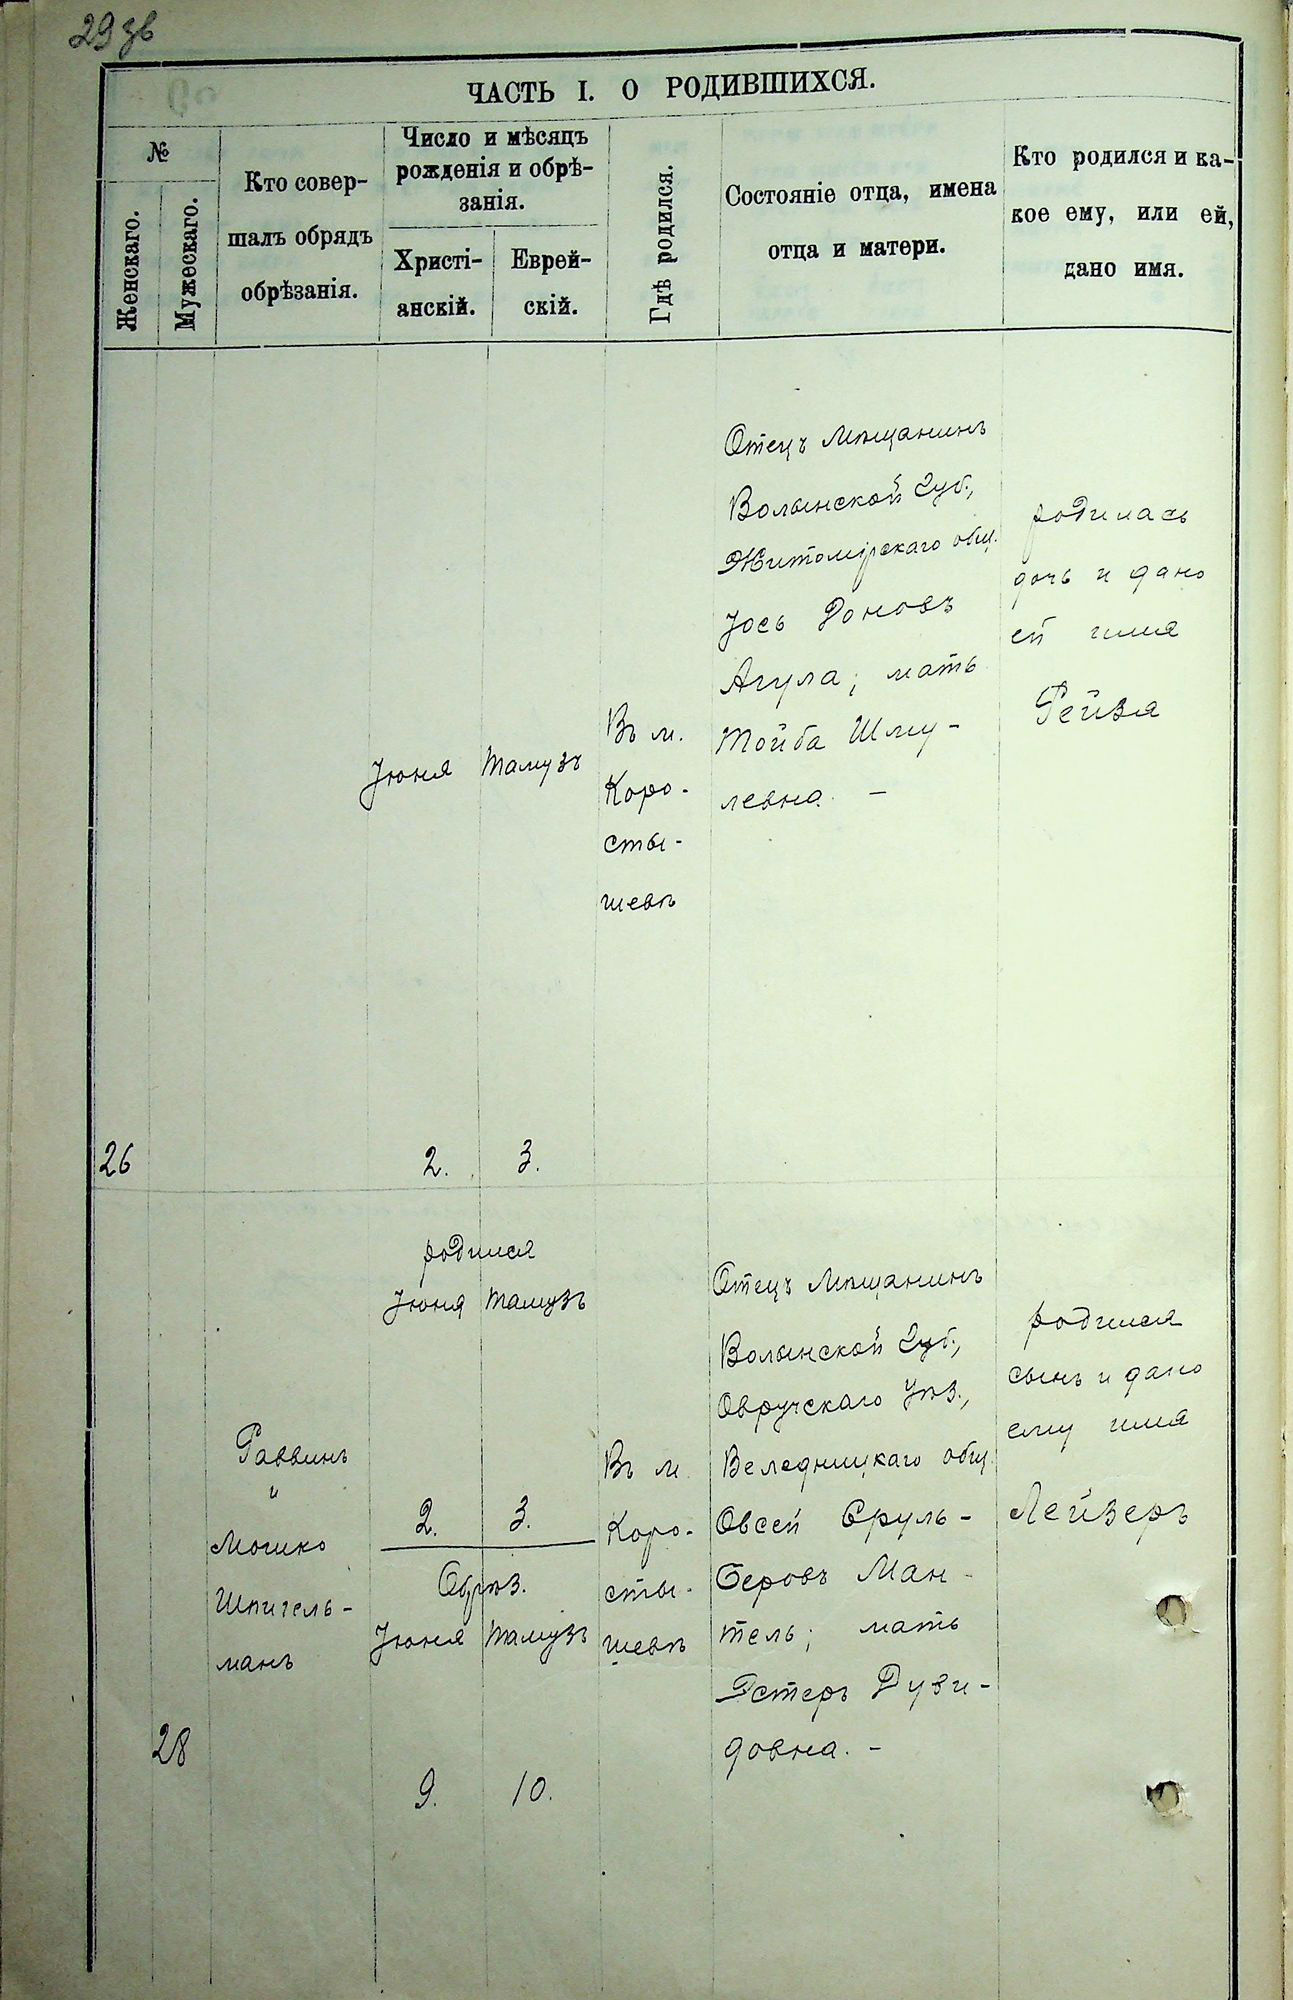 29 зв
ЧАСТЬ I. О РОДИВШИХСЯ.
№
Женскаго.
Мужескаго.
Кто совер-
шалъ обрядъ
обрѣзанія.
Число и мѣсяцъ
рожденія и обрѣ-
занія.
Христі-
анскій.
Еврей-
скій.
Гдѣ родился.
Состояніе отца, имена
отца и матери.
Кто родился и ка-
кое ему, или ей,
дано имя.
26
Іюня
2.
Тамузъ
3.
Въ м.
Коро-
сты-
шевѣ
Отецъ Мѣщанинъ
Волынской Губ.,
Житомірскаго общ.
Іось Доновъ
Агула; мать
Тойба Шму-
левна. -
родилась
дочь и дано
ей имя
Рейзя
28
Раввинъ
и
Мошко
Шпигель-
манъ
родился
Іюня Тамузъ
2. 3.
Обрѣз.
Іюня Тамузъ
9. 10.
Въ м.
Коро-
сты-
шевѣ
Отецъ Мѣщанинъ
Волынской Губ.,
Овручскаго Уѣз.,
Веледницкаго общ.
Овсей Сруль-
Беровъ Ман-
тель; мать
Эстеръ Дуви-
довна. -
родился
сынъ и дано
ему имя
Лейзеръ